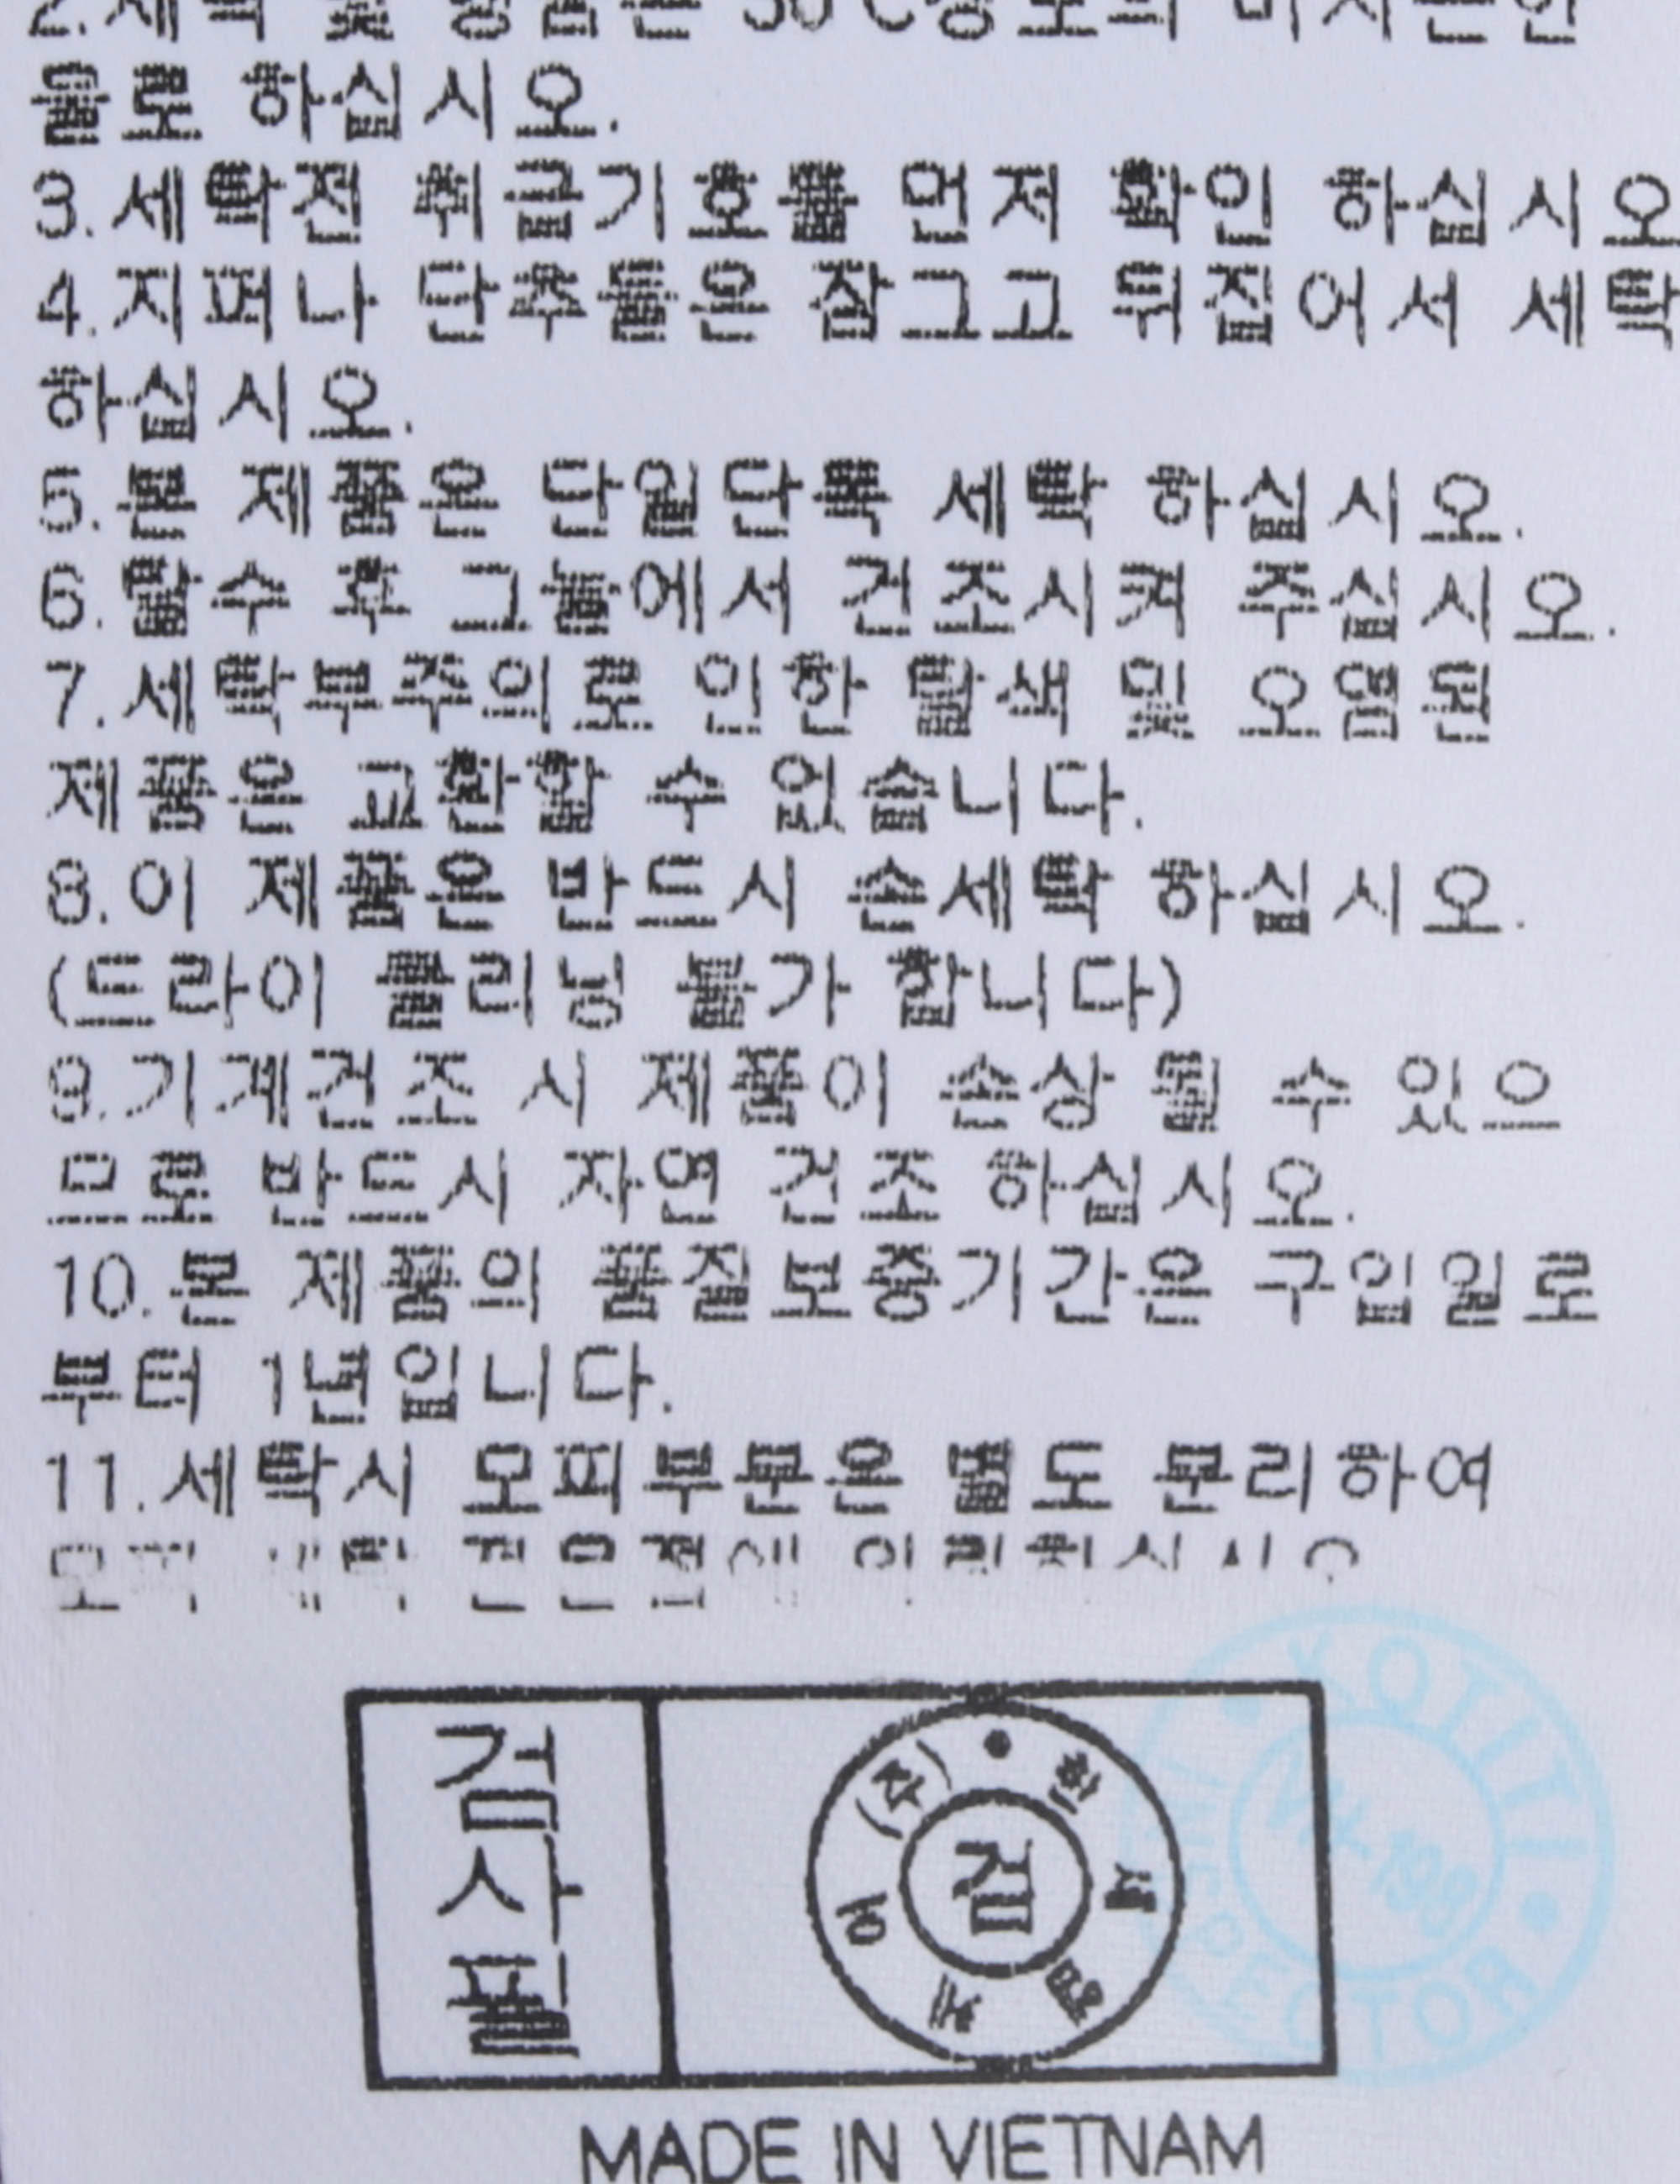 2.세탁 및 헹굼은 30℃정도의 미지근한
물로 하십시오.
3.세탁전 취급기호를 먼저 확인 하십시오
4.지퍼나 단추들은 잠그고 뒤집어서 세탁
하십시오.
5.본 제품은 단일단독 세탁 하십시오.
6.탈수 후 그늘에서 건조시켜 주십시오.
7.세탁부주의로 인한 탈색 및 오염된
제품은 교환할 수 없습니다.
8.이 제품은 반드시 손세탁 하십시오.
(드라이 클리닝 불가 합니다)
9.기계건조 시 제품이 손상 될 수 있으
므로 반드시 자연 건조 하십시오.
10.본 제품의 품질보증기간은 구입일로
부터 1년입니다.
11.세탁시 모피부분은 별도 분리하여
모피 세탁 전문점에 의뢰하십시오
검사필
(주)한세엠케이
검
KOTITI
INSPECTOR
MADE IN VIETNAM